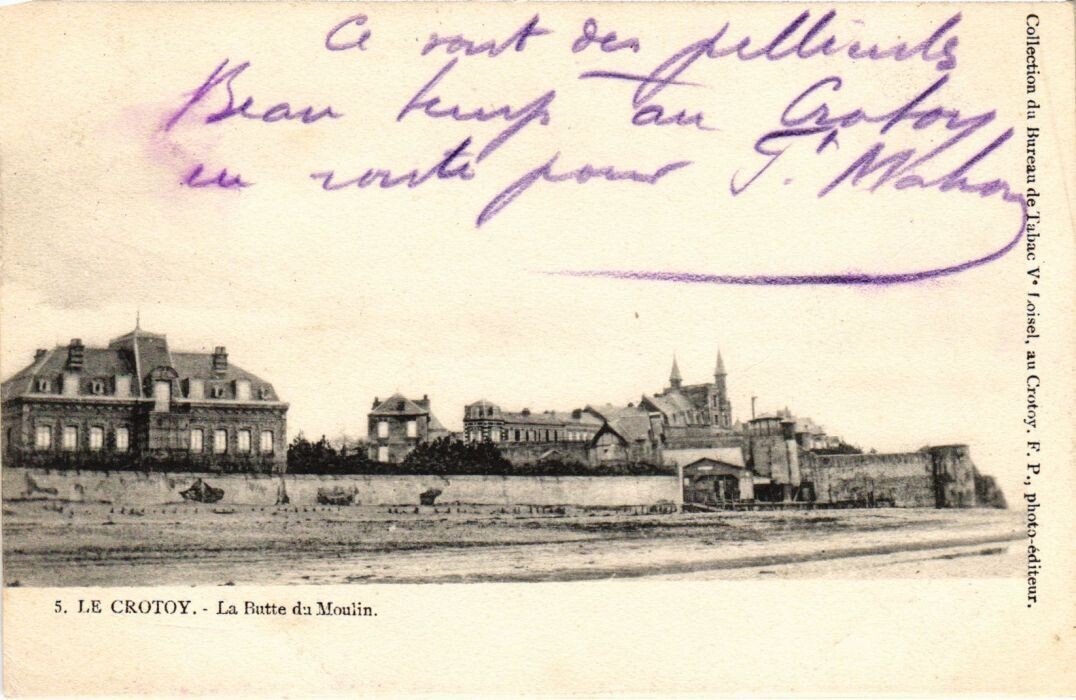 Ce sont des pellicules
Beau temps au Crotoy
en route pour
5. LE CROTOY. - La Butte du Moulin.
Collection du Bureau de Tabac Vᵉ Loisel, au Crotoy. F. P., photo-éditeur.